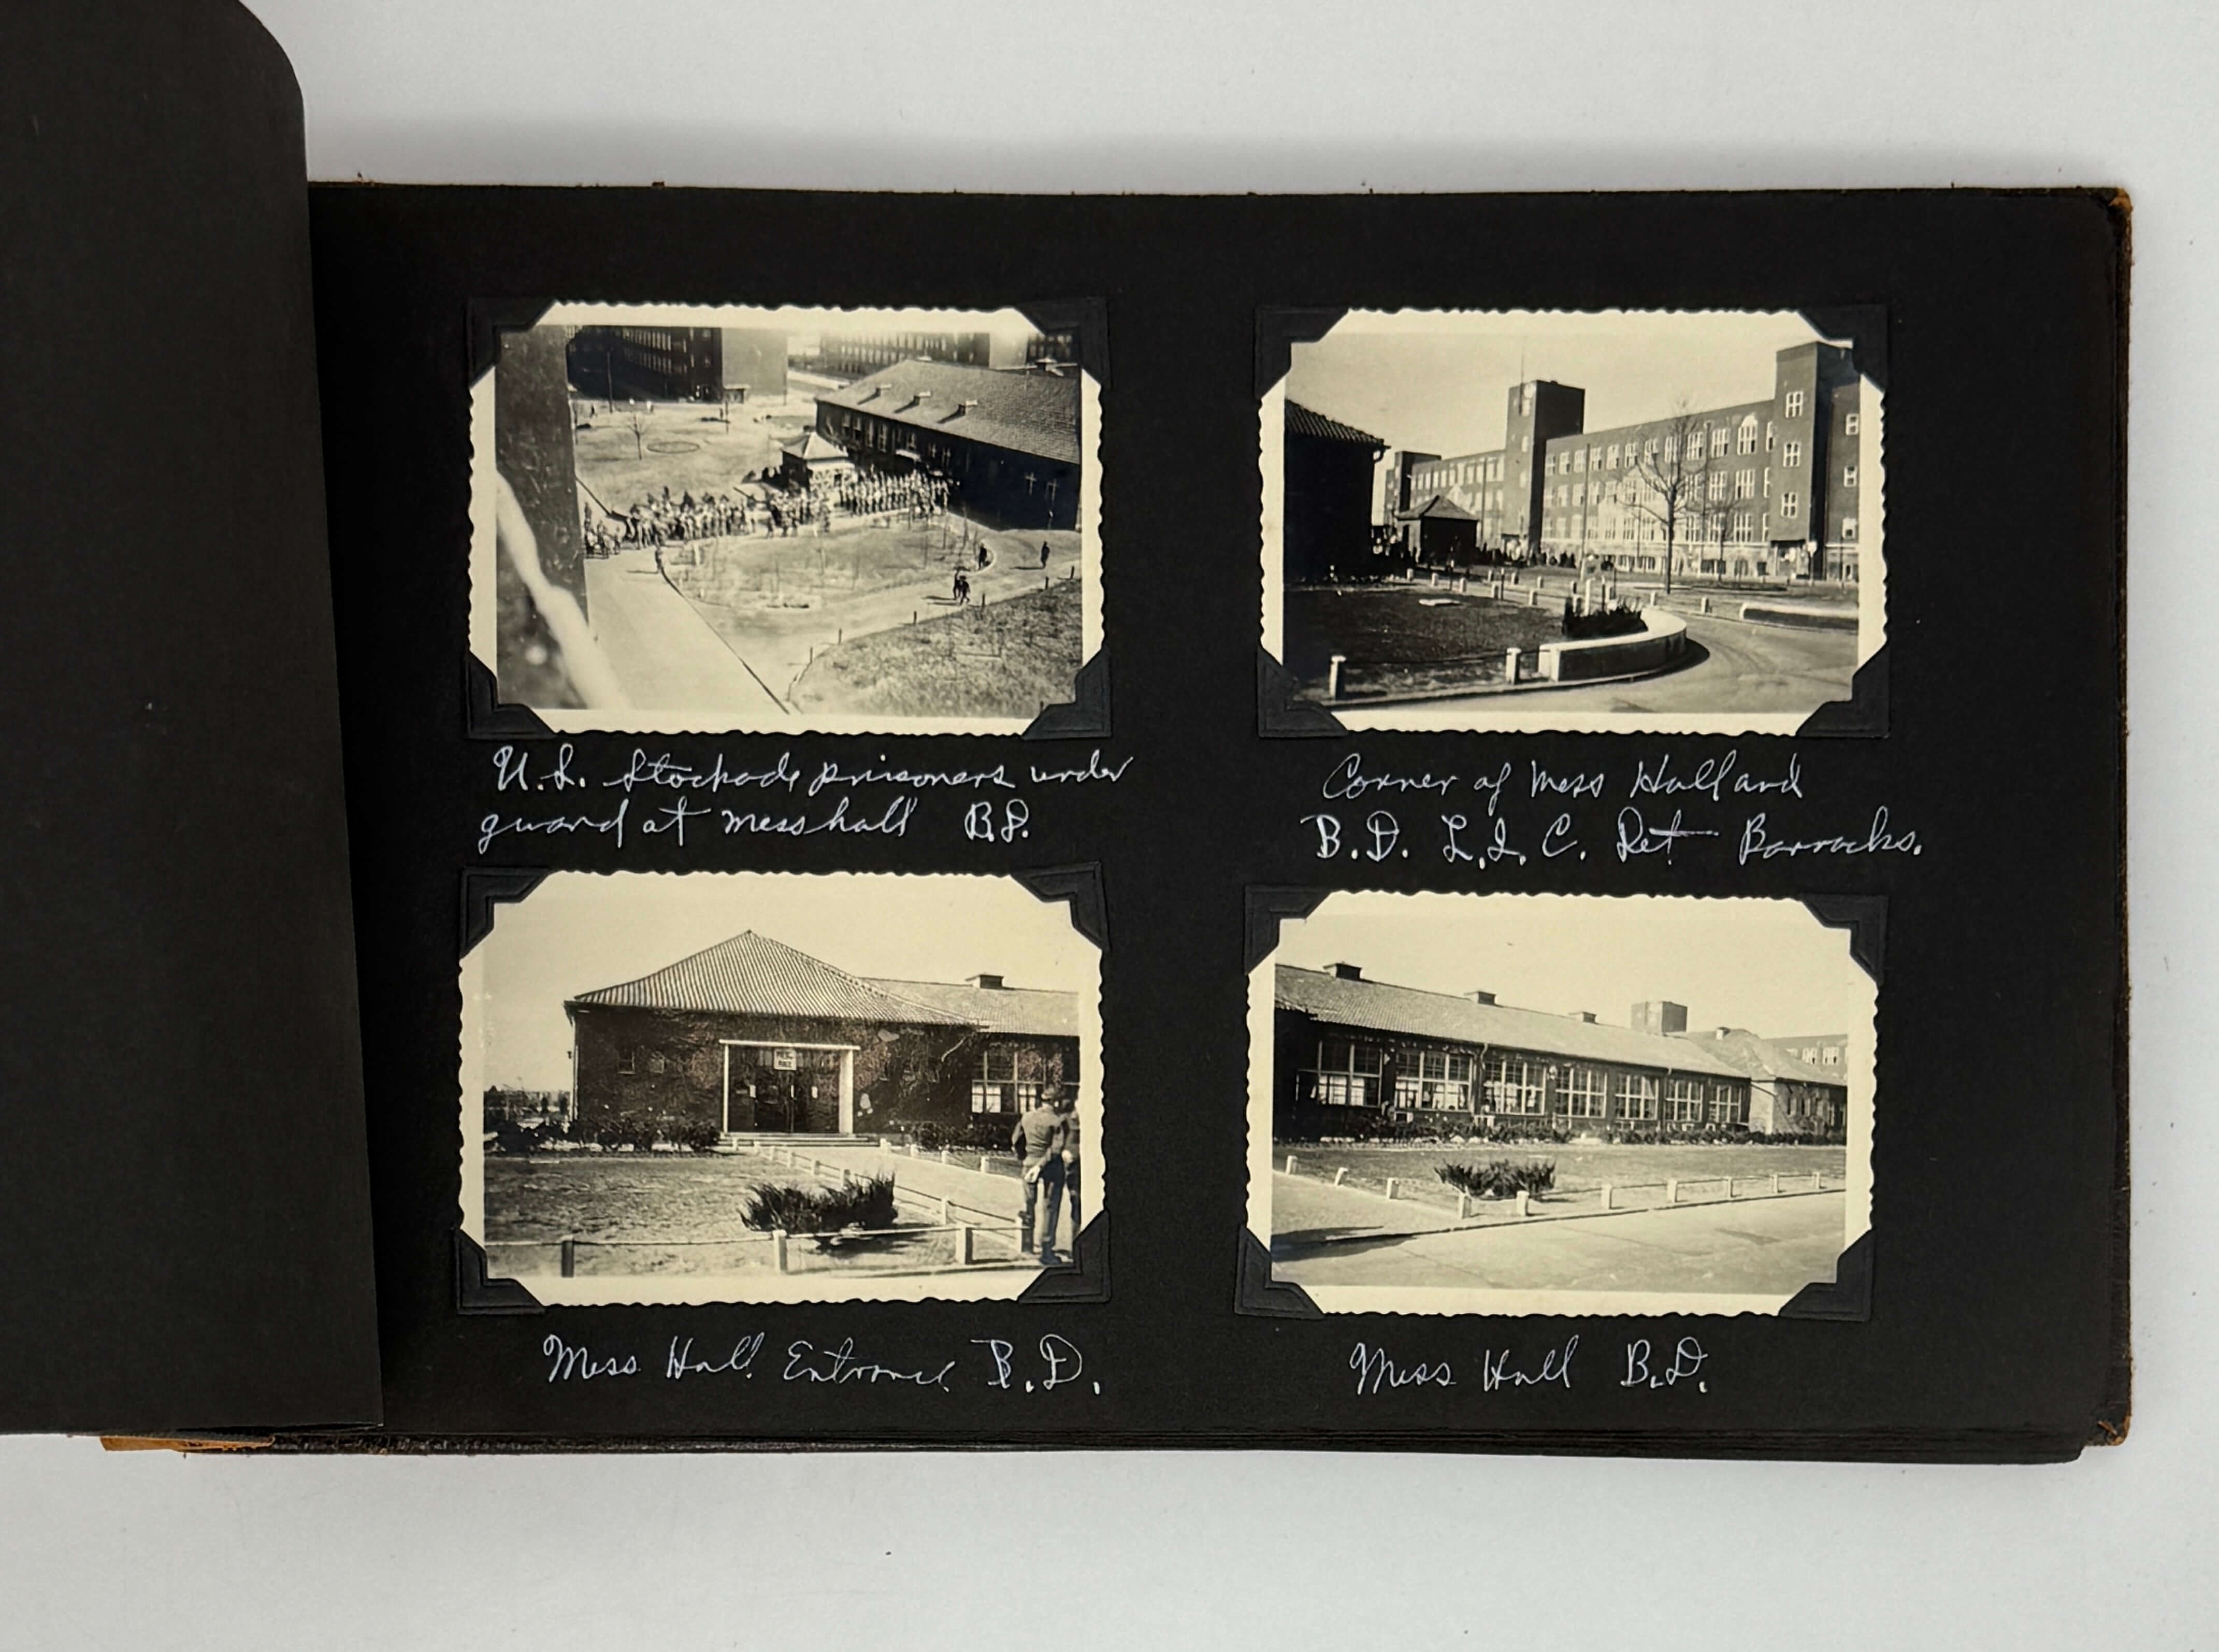 U.S. Stockade prisoners under
guard at messhall B.D.
Corner of Mess Hall and
B.D. L.I.C. Det Barracks.
Mess Hall Entrance B.D.
Mess Hall B.D.